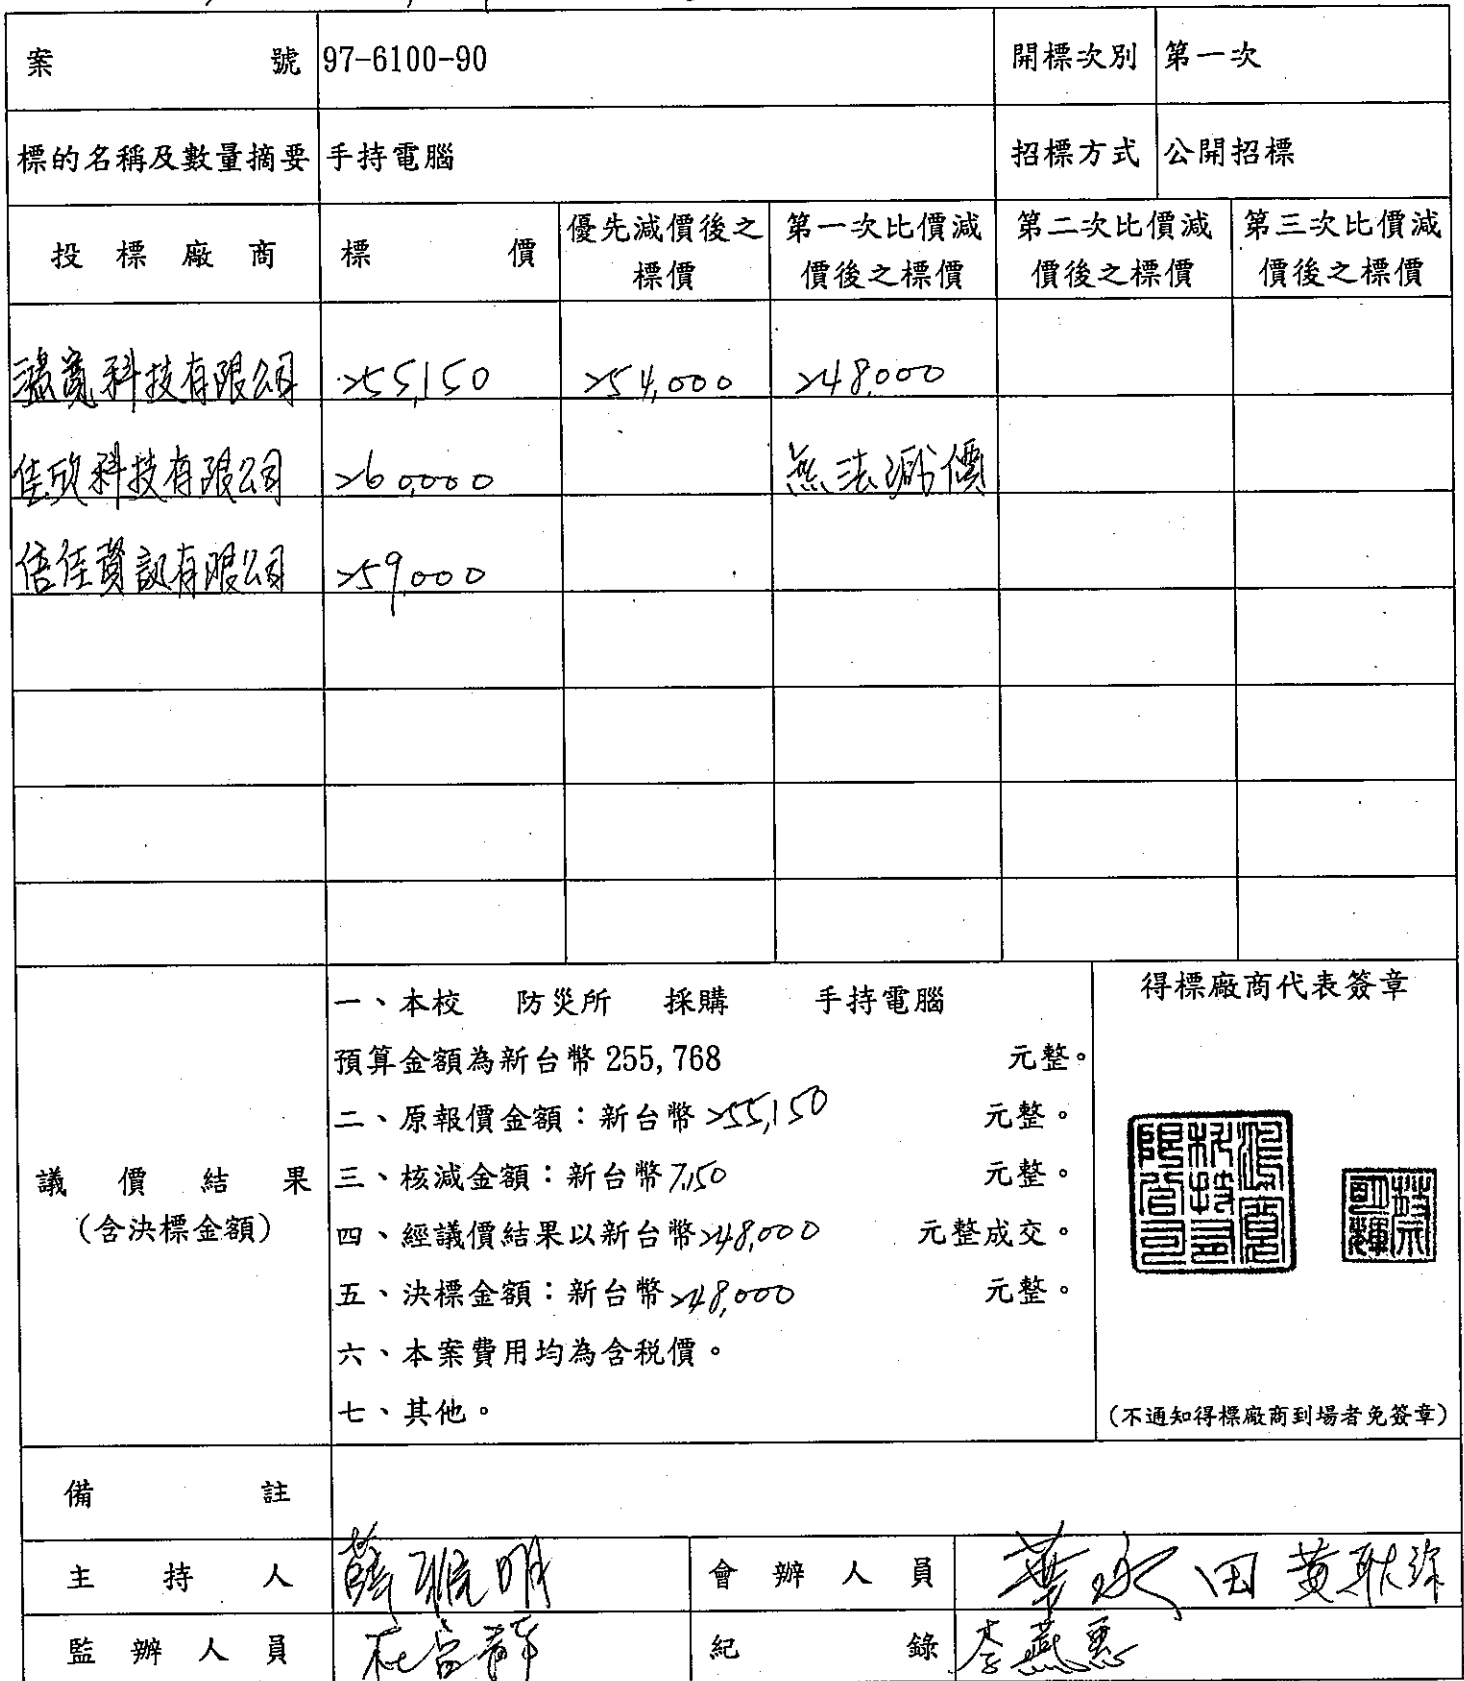 案 號 97-6100-90 開標次別 第一次
標的名稱及數量摘要 手持電腦 招標方式 公開招標
投標廠商 標價 優先減價後之標價 第一次比價減價後之標價 第二次比價減價後之標價 第三次比價減價後之標價
科技有限公司 255,150 254,000 248,000
佳欣科技有限公司 260,000 無法減價
倍佳資訊有限公司 259,000
議價結果
(含決標金額)
一、本校 防災所 採購 手持電腦
預算金額為新台幣 255,768 元整。
二、原報價金額：新台幣 255,150 元整。
三、核減金額：新台幣 7,150 元整。
四、經議價結果以新台幣 248,000 元整成交。
五、決標金額：新台幣 248,000 元整。
六、本案費用均為含稅價。
七、其他。
得標廠商代表簽章
(不通知得標廠商到場者免簽章)
備註
主持人 會辦人員
監辦人員 紀錄 李燕惠